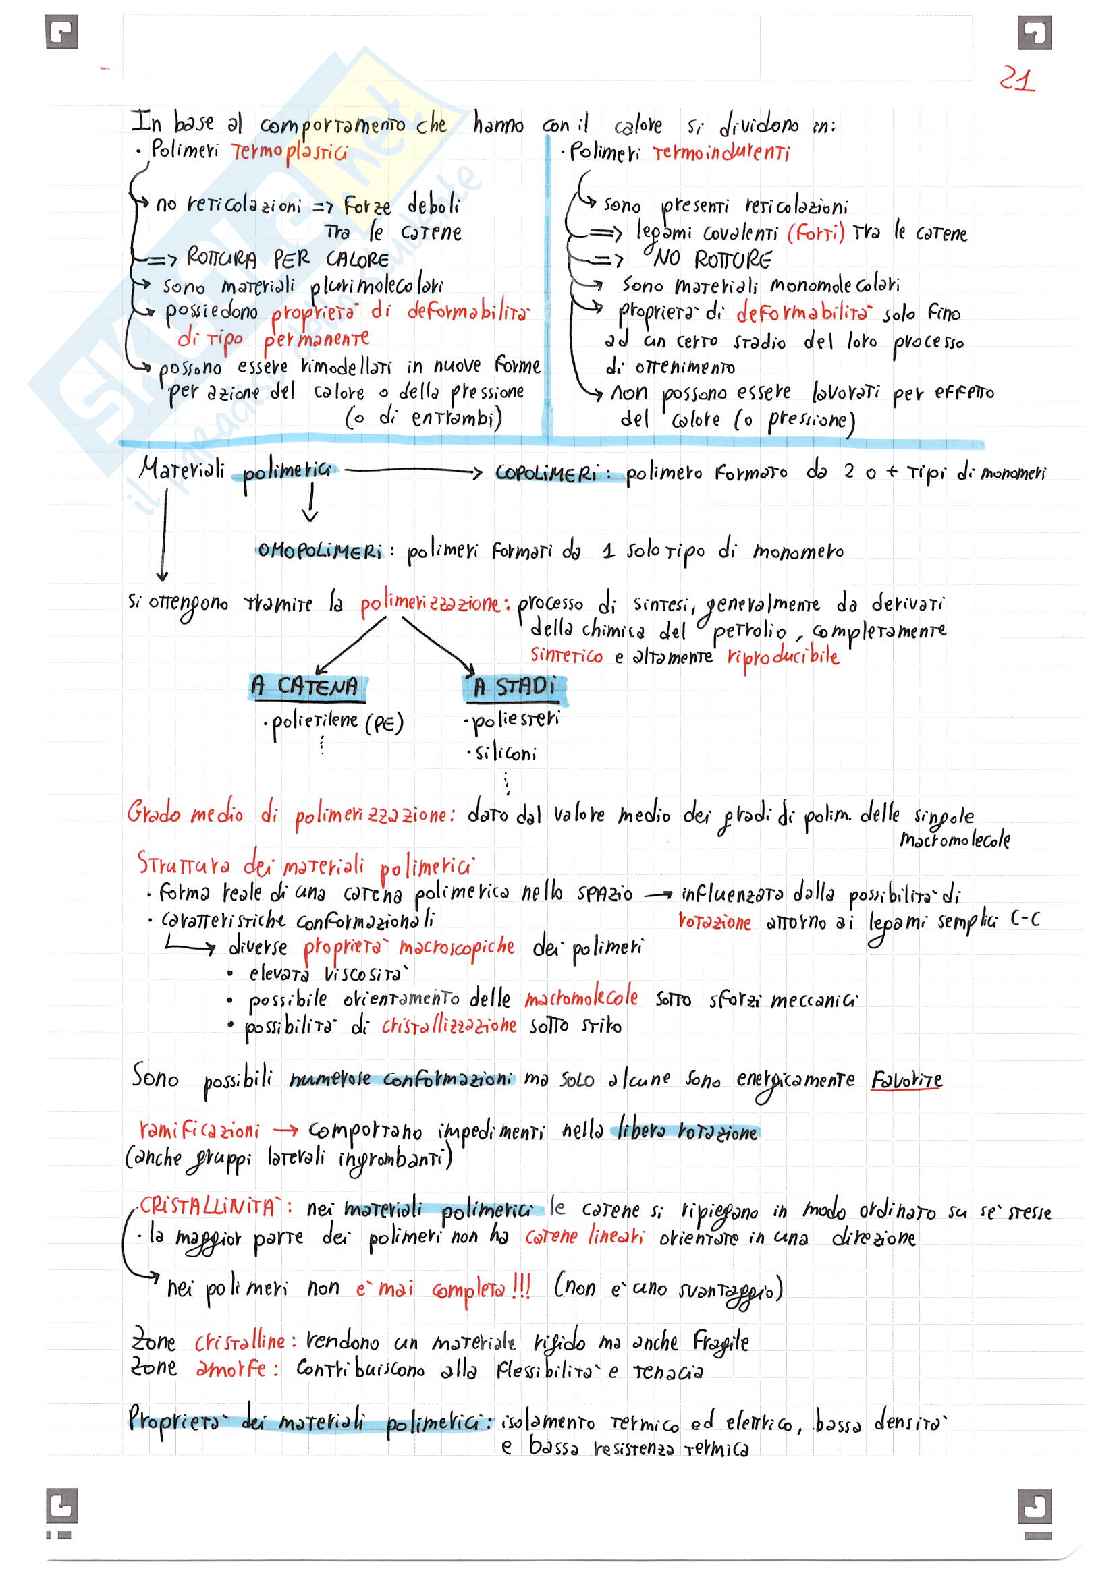 21
In base al comportamento che hanno con il calore si dividono in:
· Polimeri termoplastici
no reticolazioni => Forze deboli
tra le catene
=> ROTTURA PER CALORE
sono materiali plurimolecolari
possiedono proprietà di deformabilità
di tipo permanente
possono essere rimodellati in nuove forme
per azione del calore o della pressione
(o di entrambi)
· Polimeri termoindurenti
sono presenti reticolazioni
=> legami covalenti (forti) tra le catene
=> NO ROTTURE
sono materiali monomolecolari
proprietà di deformabilità solo fino
ad un certo stadio del loro processo
di ottenimento
non possono essere lavorati per effetto
del calore (o pressione)
Materiali polimerici → COPOLIMERI: polimero formato da 2 o + tipi di monomeri
OMOPOLIMERI: polimeri formati da 1 solo tipo di monomero
si ottengono tramite la polimerizzazione: processo di sintesi, generalmente da derivati
della chimica del petrolio, completamente
sintetico e altamente riproducibile
A CATENA
· polietilene (PE)
A STADI
· poliesteri
· siliconi
Grado medio di polimerizzazione: dato dal valore medio dei gradi di polim. delle singole
macromolecole
Struttura dei materiali polimerici
· forma reale di una catena polimerica nello SPAZIO → influenzata dalla possibilità di
rotazione attorno ai legami semplici C-C
· caratteristiche conformazionali
diverse proprietà macroscopiche dei polimeri
• elevata viscosità
• possibile orientamento delle macromolecole sotto sforzi meccanici
• possibilità di cristallizzazione sotto stiro
Sono possibili numerose conformazioni ma solo alcune sono energicamente Favorite
ramificazioni → comportano impedimenti nella libera rotazione
(anche gruppi laterali ingrombanti)
CRISTALLINITÀ: nei materiali polimerici le catene si ripiegano in modo ordinato su sè stesse
· la maggior parte dei polimeri non ha catene lineari orientate in una direzione
nei polimeri non è mai completa!!! (non è uno svantaggio)
Zone cristalline: rendono un materiale rigido ma anche fragile
Zone amorfe: contribuiscono alla flessibilità e tenacia
Proprietà dei materiali polimerici: isolamento termico ed elettrico, bassa densità
e bassa resistenza termica